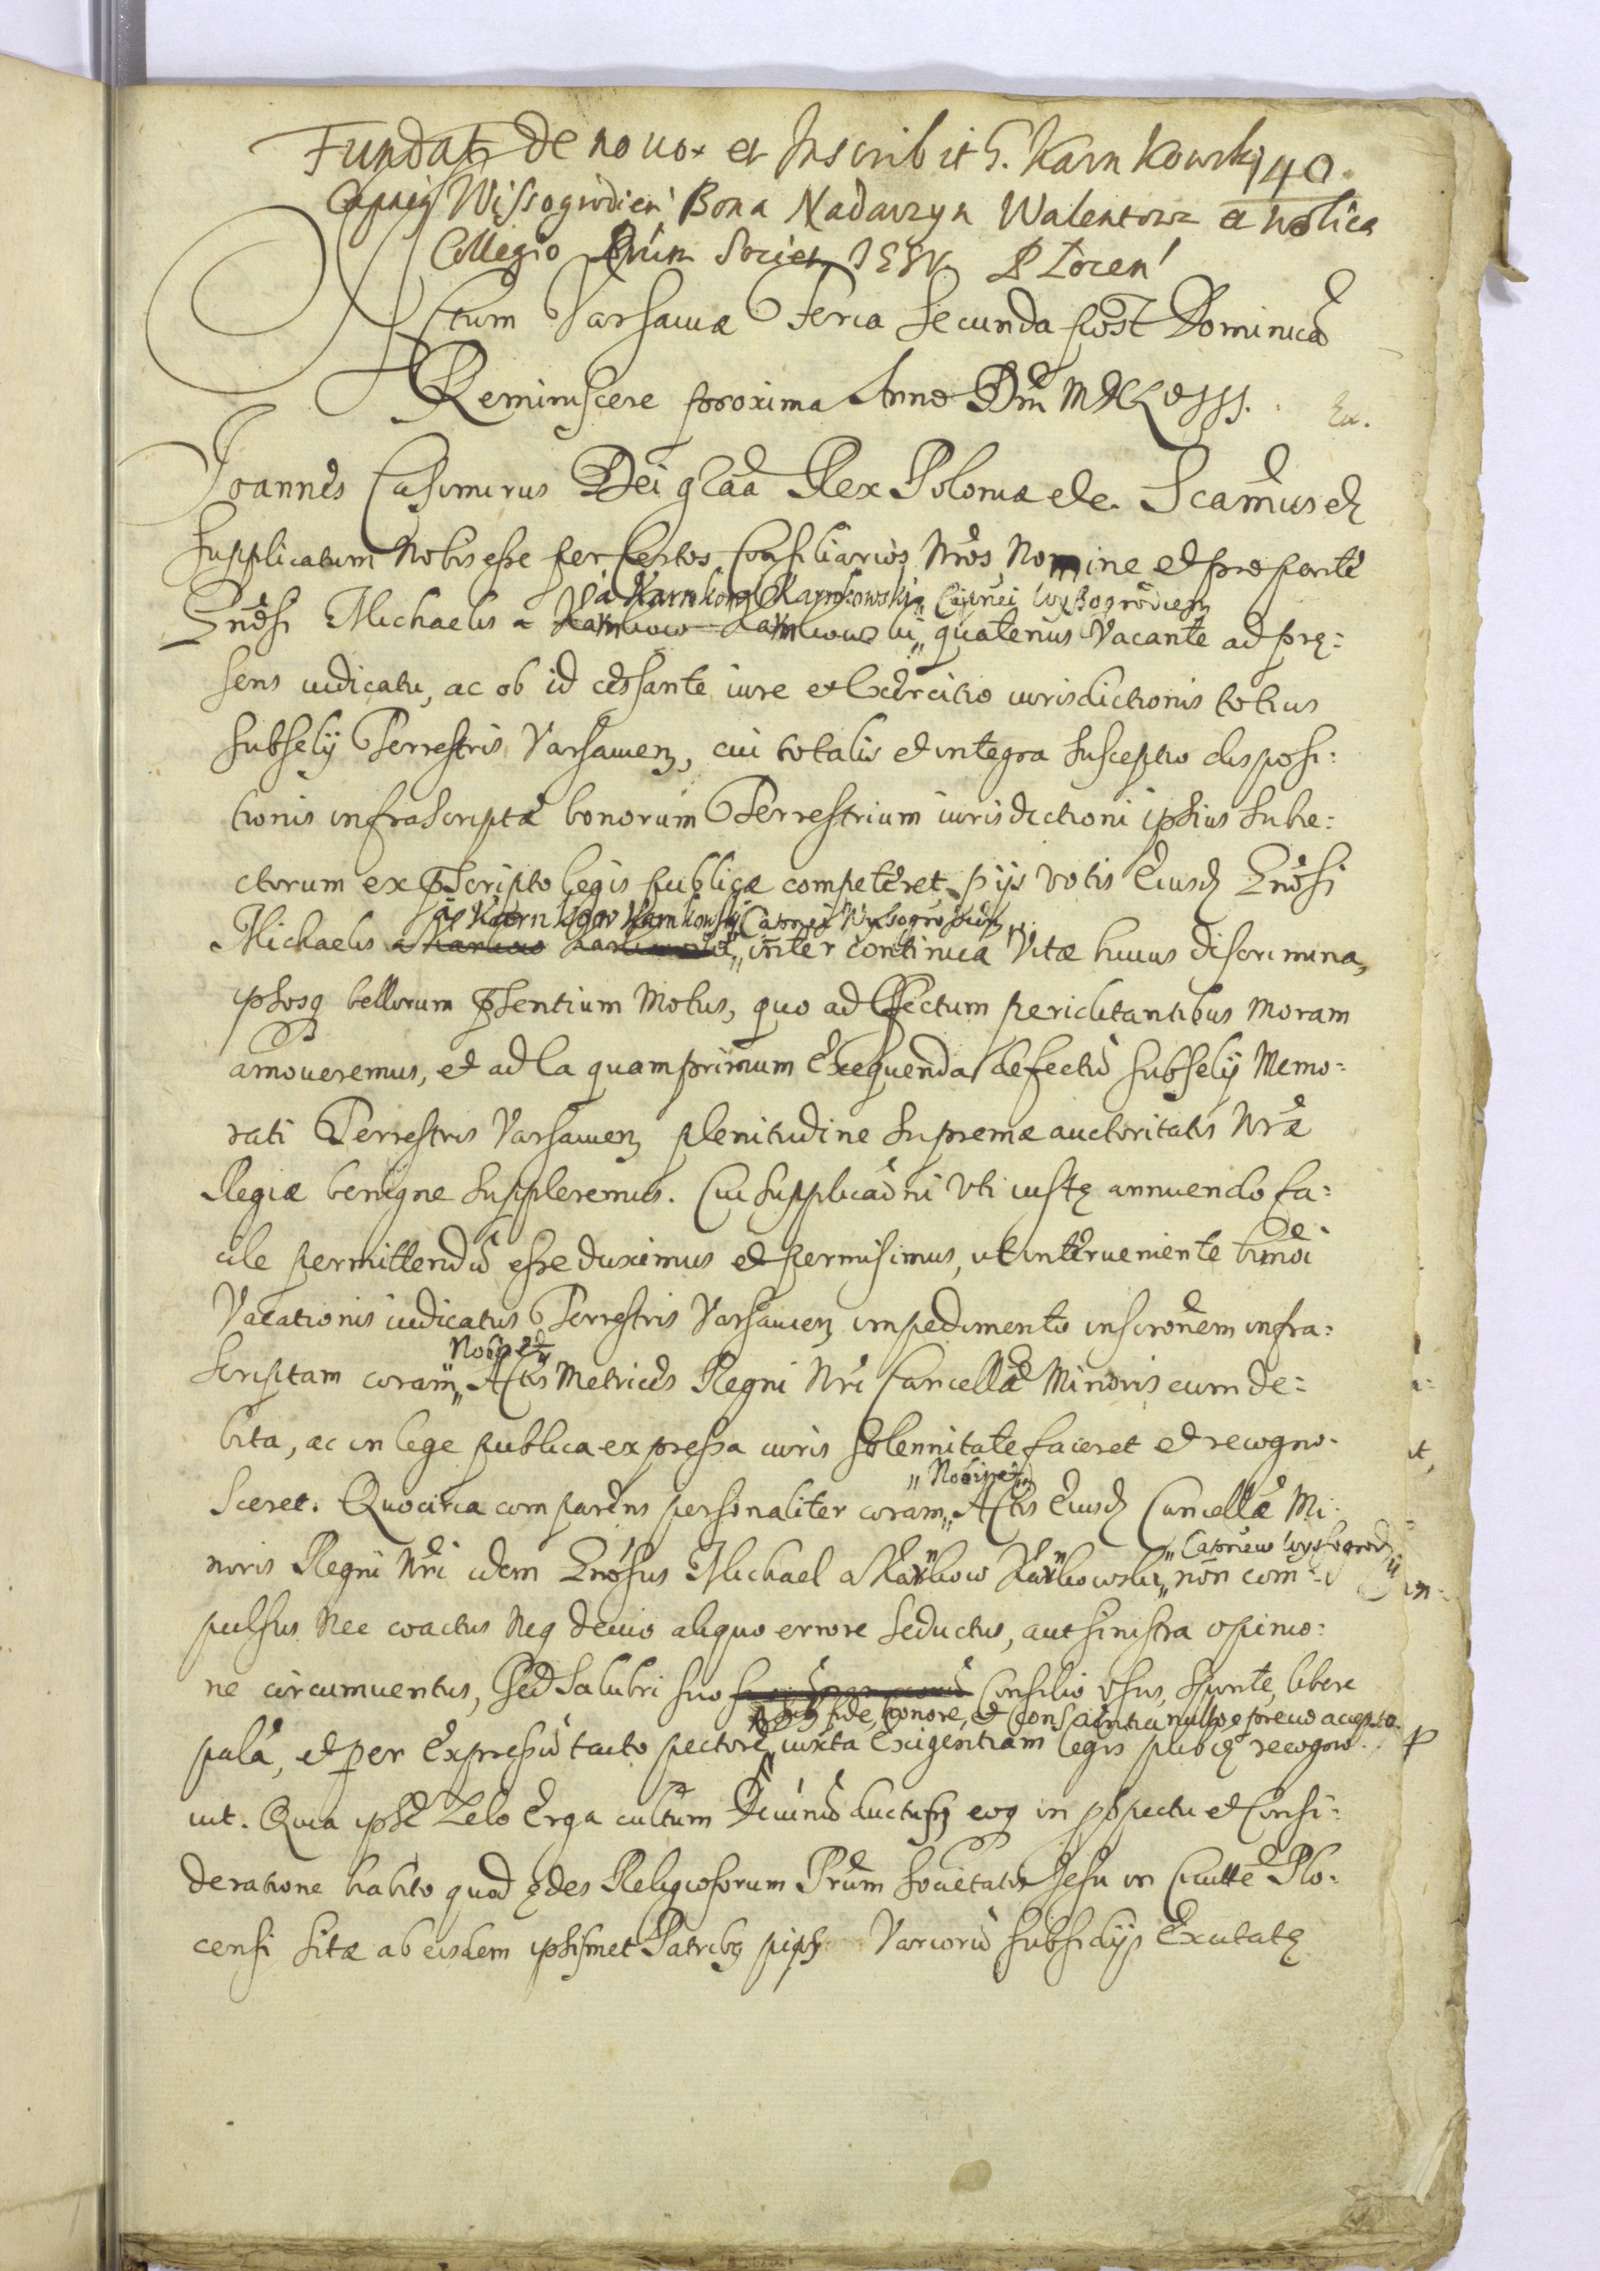 Fundat de novo et Inscribit G. Karnkowski 140.
Capneus Wissogrodien Bona Nadarzyn Walentow et Wolica
Collegio Prum Societ. IESV Plocen
Actum Varsaviæ Feria Secunda post Dominicã
Reminiscere proxima Anno Dni
Joannes Casimirus Dei graa Rex Poloniæ etc.
Supplicatum Nobis esse per certos Consiliarios Nros, Nomine et pro parte
à Karnkow Karnkowski, Capnei Wyssogrodien
Gnosi Michaelis a quatenus Vacante ad prę:
sens iudicatu, ac ob id cessante iure et Exercitio iurisdictionis totius
Subselij Terrestris Varsavien, cui totalis et integra susceptio disposi:
tionis infrascriptæ bonorum Terrestrium iurisdictioni ipsius Subie:
ctorum ex pscripto legis publicæ competeret, pijs votis Eiusd Gnosi
à Karnkow Karnkowski Capnei Wyssogrodien
Michaelis inter continua Vitæ huius discrimina,
ipsosq bellorum psentium Motus, quo ad Effectum periclitantibus moram
amoveremus, et ad Ea quamprimum Exequenda defectũ Subselij Memo:
rati Terrestris Varsavien plenitudine Supremæ auctoritatis Nræ
Regiæ benigne suppleremus. Cui supplicaoni Uti iustę annuendo fa:
cile permittendũ esse duximus et permisimus, ut interveniente
Vacationis iudicatus Terrestris Varsavien impedimento inscronem infra:
Nobis et
scriptam coram Actis Metrices Regni Nri Cancellæ Minoris cum de:
bita, ac in lege publica expressa iuris solennitate faceret et recogno:
Nobis et
sceret. Quocirca comparens personaliter coram Actis Eiusd Cancellæ Mi:
Capneus Wyssogrod
noris Regni Nri idem Gnosus Michael a Karnkow Karnkowski, non com:
pulsus nec coactus neq devio aliquo errore seductus, aut sinistra opinio:
ne circumventus, Sed Salubri suo Consilio usus, Sponte, libere
sub fide, honore, et conscientia
palã, et per Expressũ tacto pectore iuxta Exigentiam legis recogno
vit. Quia ipse Zelo Erga cultum Divinũ ductus eoq in pspectu et Consi:
deratione habito quod ędes Religiosorum Prum Societatis Jesu in Civitte Plo:
censi sitæ ab eisdem ipsismet Patribq Variorũ subsidijs Excitatę